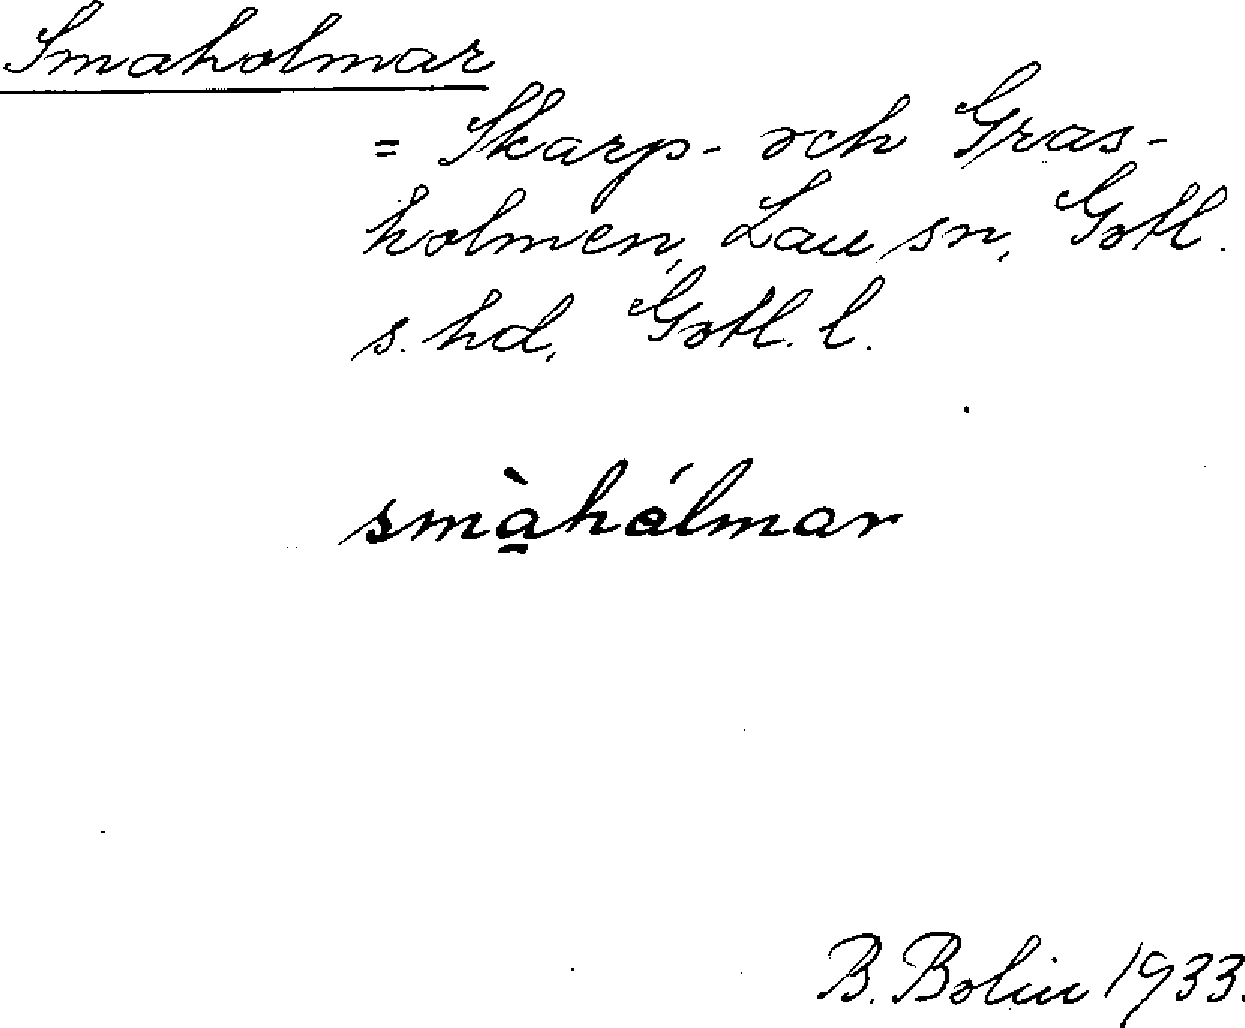 Smaholmar
= Skarp- och Gras-
holmen, Lau sn, Gotl.
s. hd, Gotl. l.
smàhólmar
B. Bolin 1933.